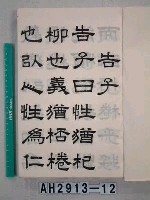 告子曰性猶杞
柳也義猶桮棬
也以人性為仁
AH2913-12